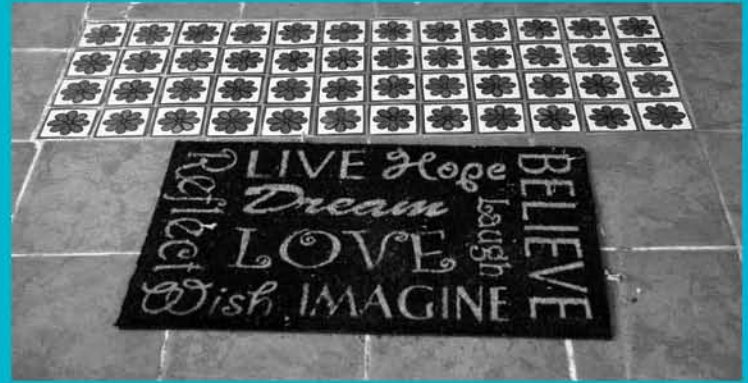 Reflect
LIVE Hope
Dream
LOVE
Laugh
Wish IMAGINE
BELIEVE